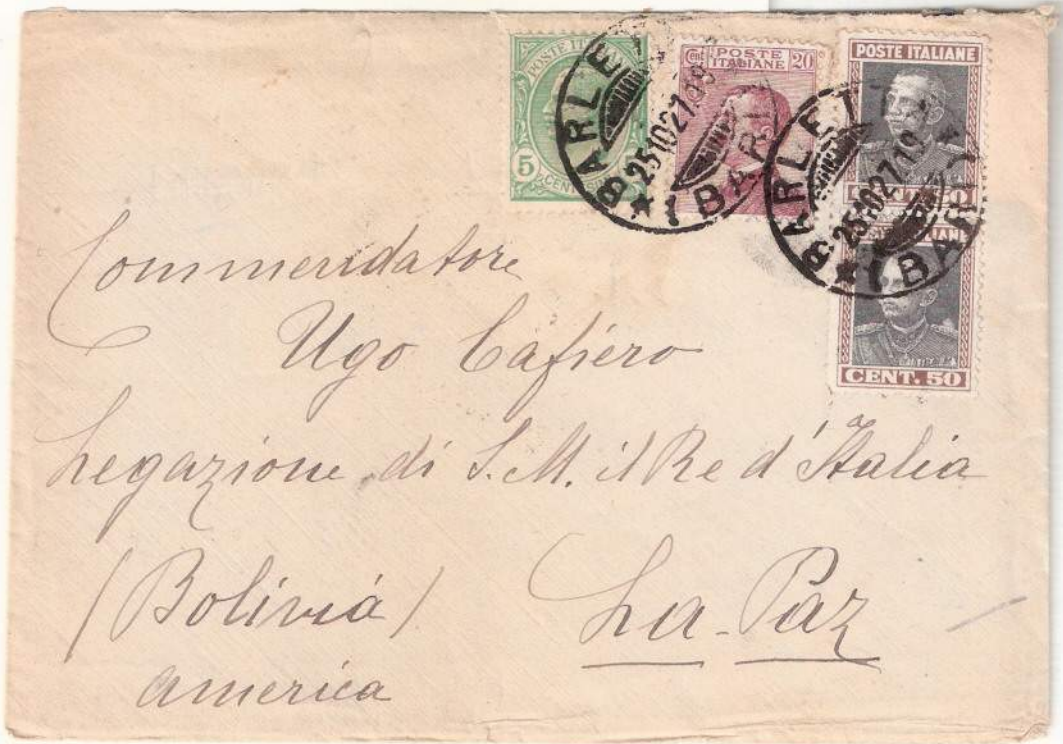 POSTE ITALIANE
5 CENTESIMI
Cent POSTE ITALIANE 20
POSTE ITALIANE
CENT. 50
POSTE ITALIANE
CENT. 50
BARLETTA
25.10.27.19
(BARI)
BARLETTA
25.10.27.19
(BARI)
Commendatore
Ugo Cafiero
Legazione di S. M. il Re d'Italia
(Bolivia)
La-Paz
America